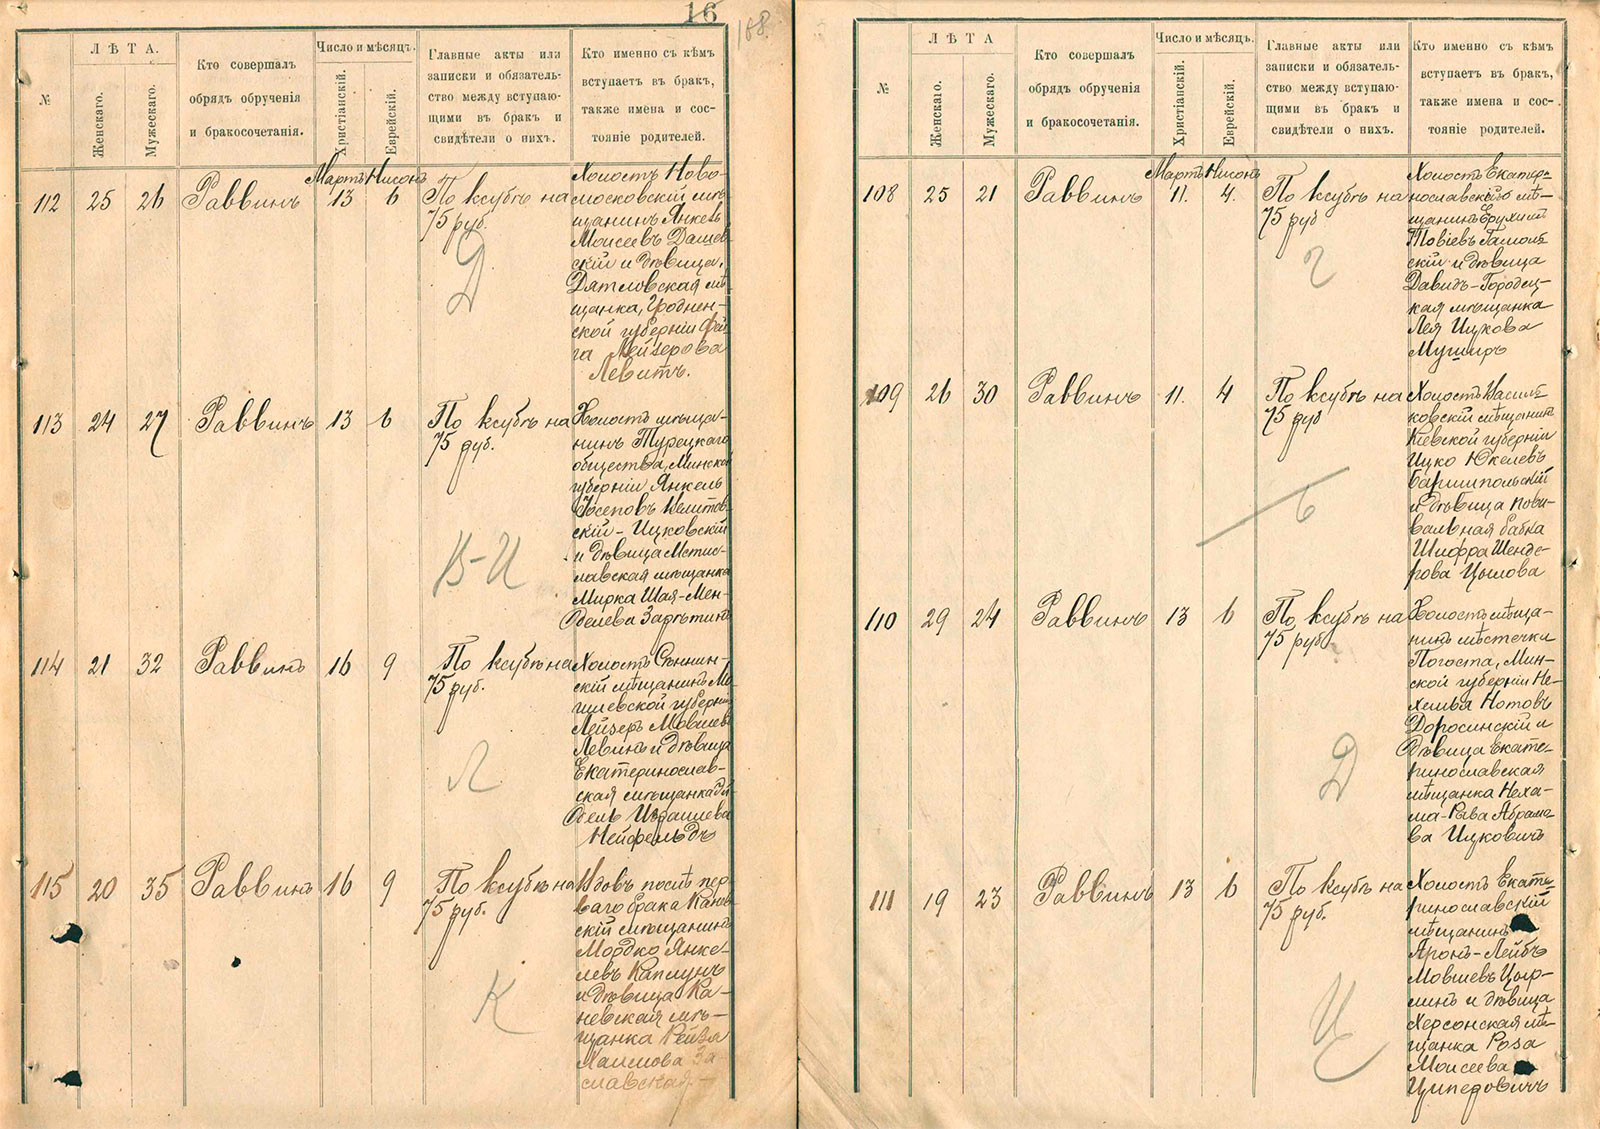 16
168.
№
ЛѢТА.
Женскаго.
Мужескаго.
Кто совершалъ
обрядъ обрученія
и бракосочетанія.
Число и мѣсяцъ.
Христіанскій.
Еврейскій.
Главные акты или
записки и обязатель-
ство между вступаю-
щими въ бракъ и
свидѣтели о нихъ.
Кто именно съ кѣмъ
вступаетъ въ бракъ,
также имена и сос-
тояніе родителей.
Мартъ Нисонъ
112 25 26 Раввинъ 13 6 По ксубѣ на
75 руб.
Холостъ Ново-
московскій мѣ-
щанинъ Янкель
Моисеевъ Дашев-
скій и дѣвица,
Дятловская мѣ-
щанка, Гроднен-
ской губерніи Фей-
га Лейзерова
Левитъ.
Д
113 24 27 Раввинъ 13 6 По ксубѣ на
75 руб.
Холостъ мѣща-
нинъ Турецкаго
общества, Минской
губерніи Янкель
Іосеповъ
скій-Ицковскій
и дѣвица Мстис-
лавская мѣщанка
Мирка Шая-Мен-
делева
В-И
114 21 32 Раввинъ 16 9 По ксубѣ на
75 руб.
Холостъ Сѣннин-
скій мѣщанинъ Мо-
гилевской губерніи
Лейзеръ Мовшевъ
Левинъ и дѣвица
Екатеринослав-
ская мѣщанка
Нейфельдъ
Л
115 20 35 Раввинъ 16 9 По ксубѣ на
75 руб.
Вдовъ послѣ пер-
ваго брака Канев-
скій мѣщанинъ
Мордко Янке-
левъ Каплунъ
и дѣвица Ка-
невская мѣ-
щанка Рейзя
Хаимова За
славская.-
К
№
ЛѢТА
Женскаго.
Мужескаго.
Кто совершалъ
обрядъ обрученія
и бракосочетанія.
Число и мѣсяцъ.
Христіанскій.
Еврейскій.
Главные акты или
записки и обязатель-
ство между вступаю-
щими въ бракъ и
свидѣтели о нихъ.
Кто именно съ кѣмъ
вступаетъ въ бракъ,
также имена и сос-
тояніе родителей.
Мартъ Нисонъ
108 25 21 Раввинъ 11. 4. По ксубѣ на
75 руб
Холостъ Екатери-
нославскій мѣ-
щанинъ Ерухим
Товіевъ
скій и дѣвица
Давидъ-Городец-
кая мѣщанка
Лея Ицкова
Муширъ
Г
109 26 30 Раввинъ 11. 4 По ксубѣ на
75 руб
Холостъ Василь-
ковскій мѣщанинъ
Кіевской губерніи
Ицко Юкелевъ
Баришпольскій
и дѣвица пови-
вальная бабка
Шифра Шенде-
рова Цымова
Б
110 29 24 Раввинъ 13 6 По ксубѣ на
75 руб.
Холостъ мѣща-
нинъ мѣстечка
Погоста, Мин-
ской губерніи Не-
хемья Нотовъ
Доросинскій и
дѣвица Екате-
ринославская
мѣщанка Неха-
ма-Рива Абрамо-
ва Ицковичъ
Д
111 19 23 Раввинъ 13 6 По ксубѣ на
75 руб.
Холостъ Екате-
ринославскій
мѣщанинъ
Аронъ-Лейбъ
Мовшевъ Цыр-
линъ и дѣвица
Херсонская мѣ-
щанка Роза
Моисеева
Циперовичъ
Ц